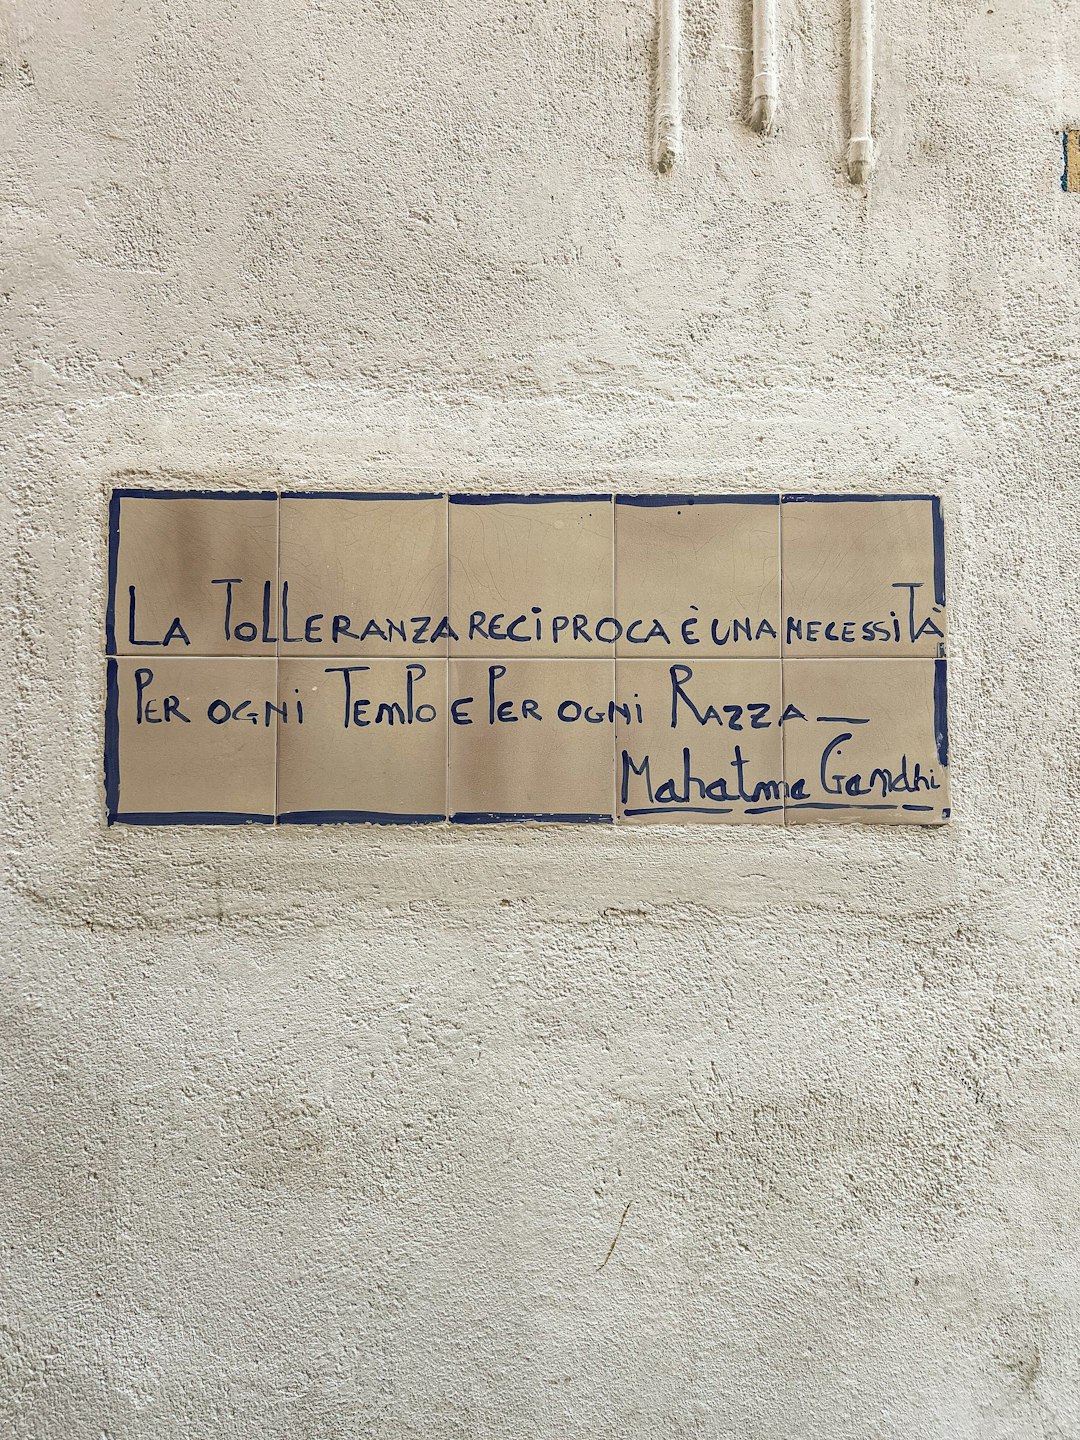 La Tolleranza reciproca è una necessità
Per ogni Tempo e Per ogni Razza_
Mahatma Gandhi